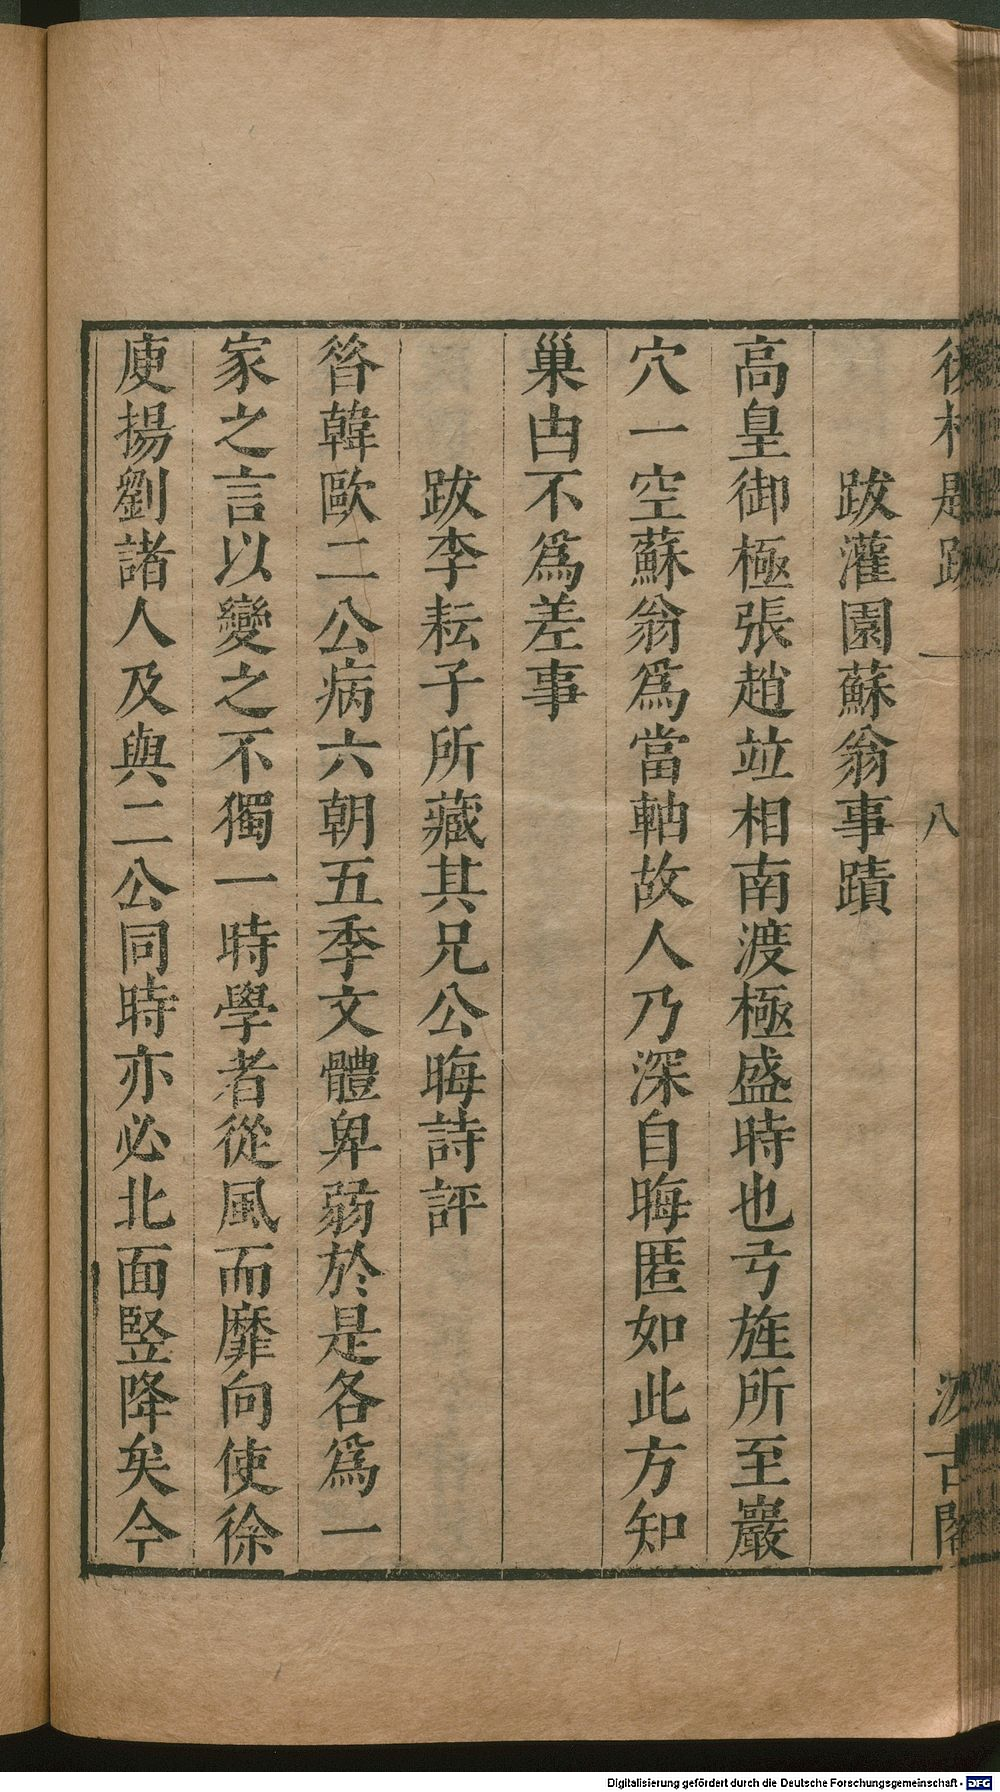 跋灌園蘇翁事蹟
高皇御極張趙竝相南渡極盛時也弓旌所至巖
穴一空蘇翁爲當軸故人乃深自晦匿如此方知
巢由不爲差事
跋李耘子所藏其兄公晦詩評
昝韓歐二公病六朝五季文體卑弱於是各爲一
家之言以變之不獨一時學者從風而靡向使徐
庾揚劉諸人及與二公同時亦必北面竪降矣今
八
古
Digitalisierung gefördert durch die Deutsche Forschungsgemeinschaft - DFG